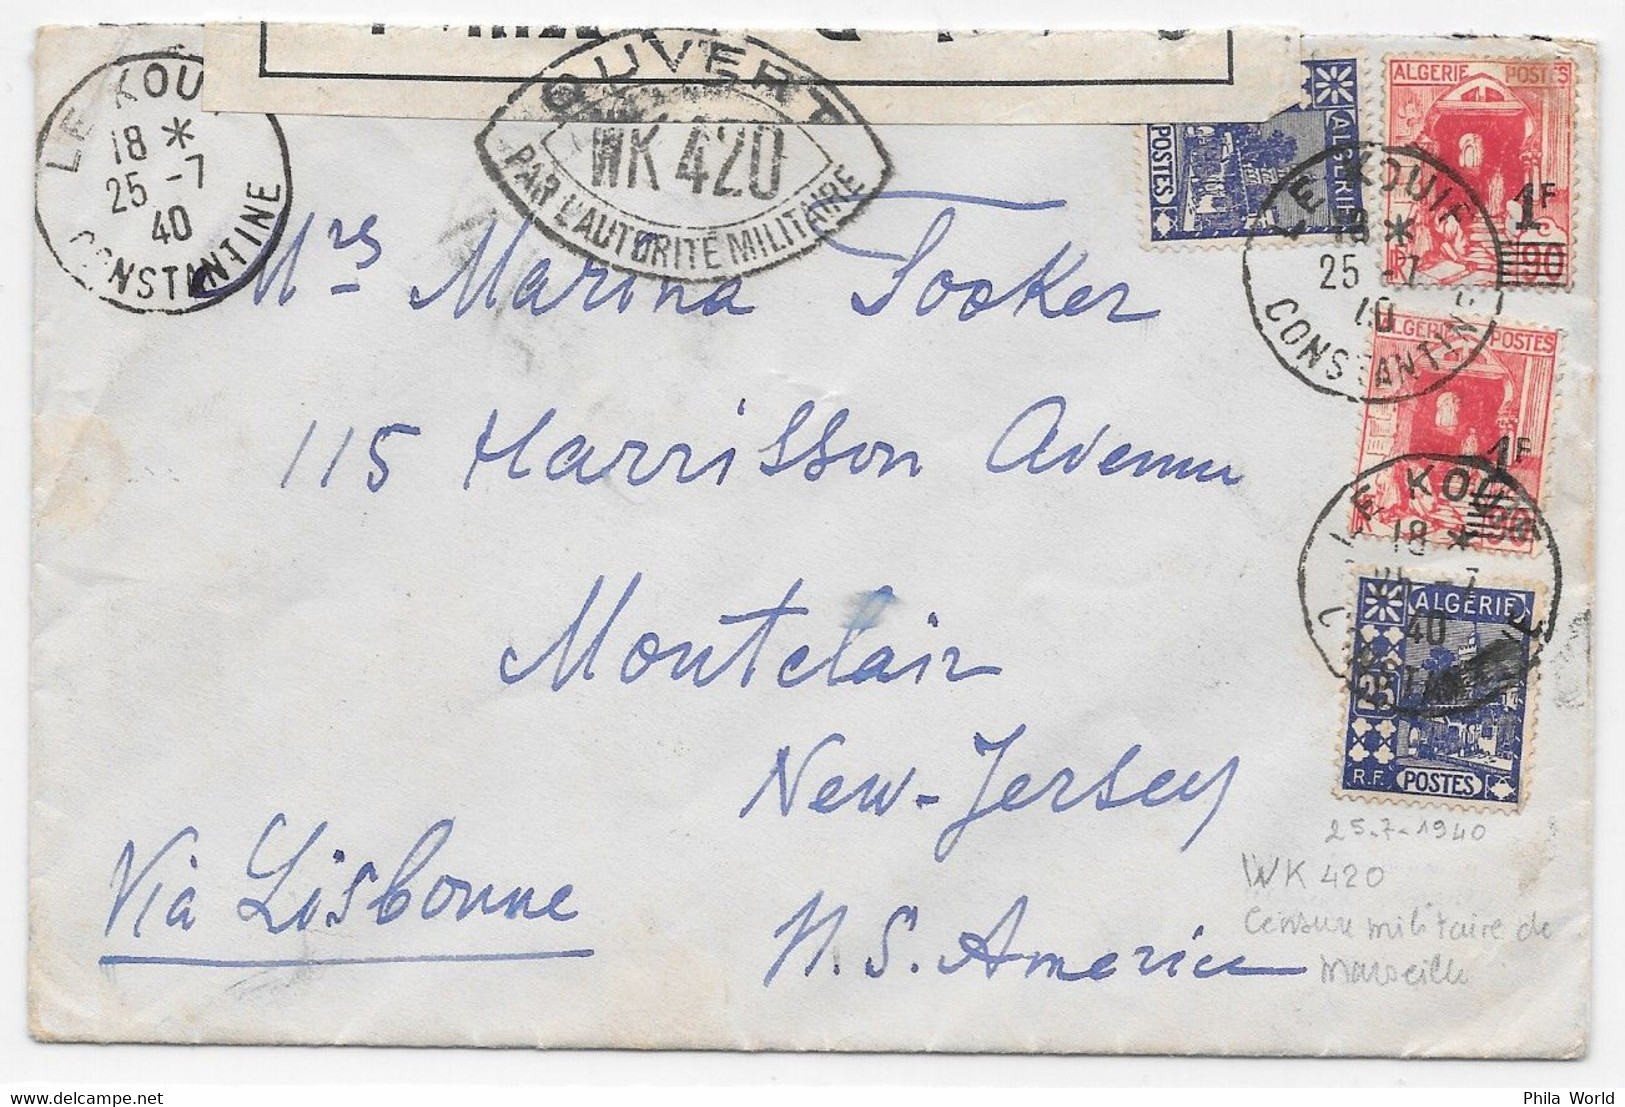 LE KOU
18 *
25 -7
40
CONSTANTINE
OUVERT
WK 420
PAR L'AUTORITÉ MILITAIRE
ALGERIE
POSTES
ALGERIE POSTES
1F
90
LE KOUIF
18 *
25 -7
40
CONSTANTINE
ALGERIE POSTES
1F
90
LE KOUIF
18 *
25 -7
40
ALGERIE
25
R.F. POSTES
Mrs Marina Tooker
115 Harrisson Avenue
Montclair
New-Jersey
U.S. America
Via Lisbonne
25-7-1940
WK 420
Censure militaire de
Marseille
Phila World